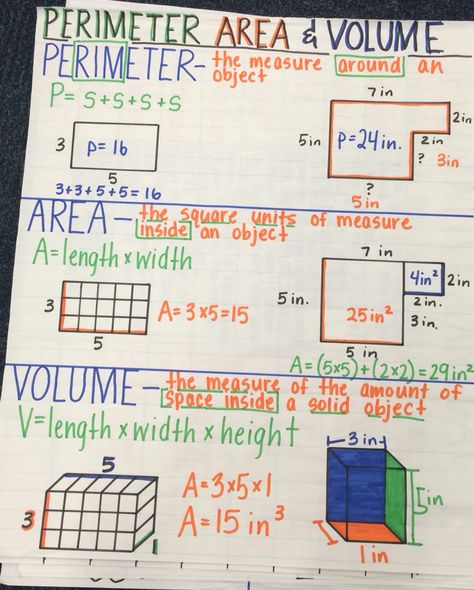 PERIMETER AREA & VOLUME
PERIMETER- the measure around an
object
P= S+S+S+S
7 in
2in
5in
P=24in.
2in
? 3in
?
5in
3
P= 16
5
3+3+5+5=16
AREA- the square units of measure
inside an object
A=length x width
7 in
4in²
2in
2in.
5in.
25in²
3in.
5 in
3
5
A= 3x5=15
A=(5x5)+(2x2)=29in²
VOLUME- the measure of the amount of
space inside a solid object
V=length x width x height
5
3
1
A=3x5x1
A=15 in³
3in
5in
1in